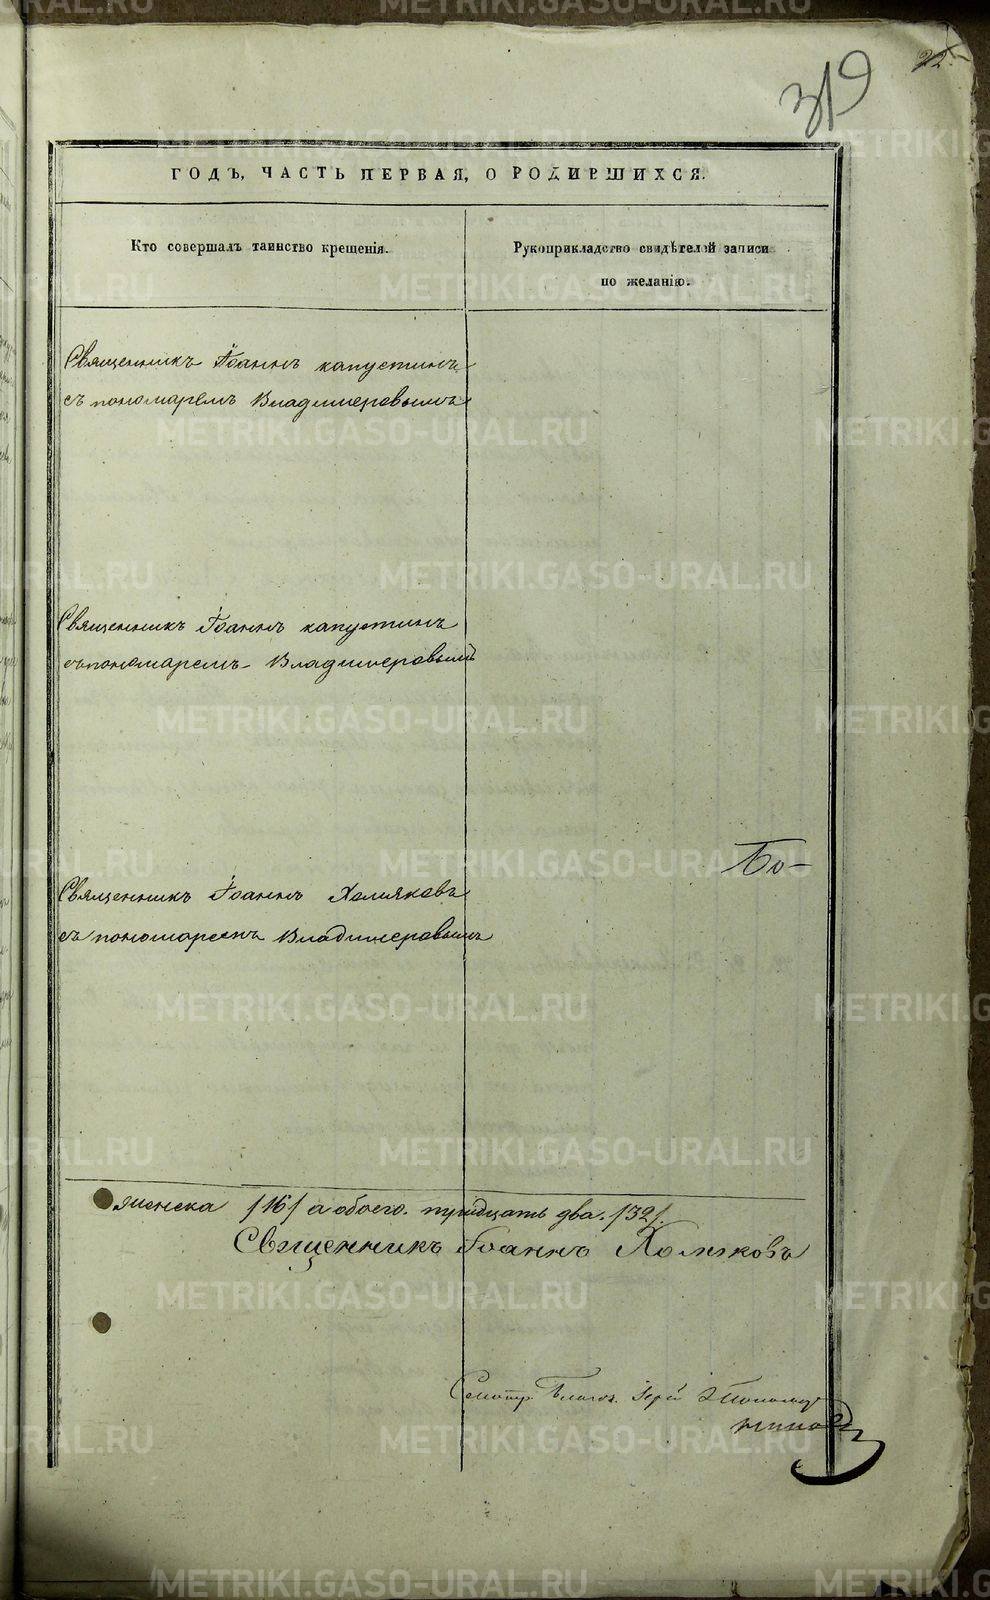 319
22.
ГОДЪ, ЧАСТЬ ПЕРВАЯ, О РОДИВШИХСЯ.
Кто совершалъ таинство крещенія.
Рукоприкладство свидѣтелей записи
по желанію.
Священникъ Іоаннъ капустинъ
съ пономаремъ Владимеровымъ
Священникъ Іоаннъ капустинъ
съ пономаремъ Владимеровымъ
Бо-
Священникъ Іоаннъ Холмяковъ
съ пономаремъ Владимеровымъ
женска /16/ а обоего тридцать два. /32/.
Священникъ Іоаннъ Холмяковъ
Смотр. Благоч. Іерей
METRIKI.GASO-URAL.RU